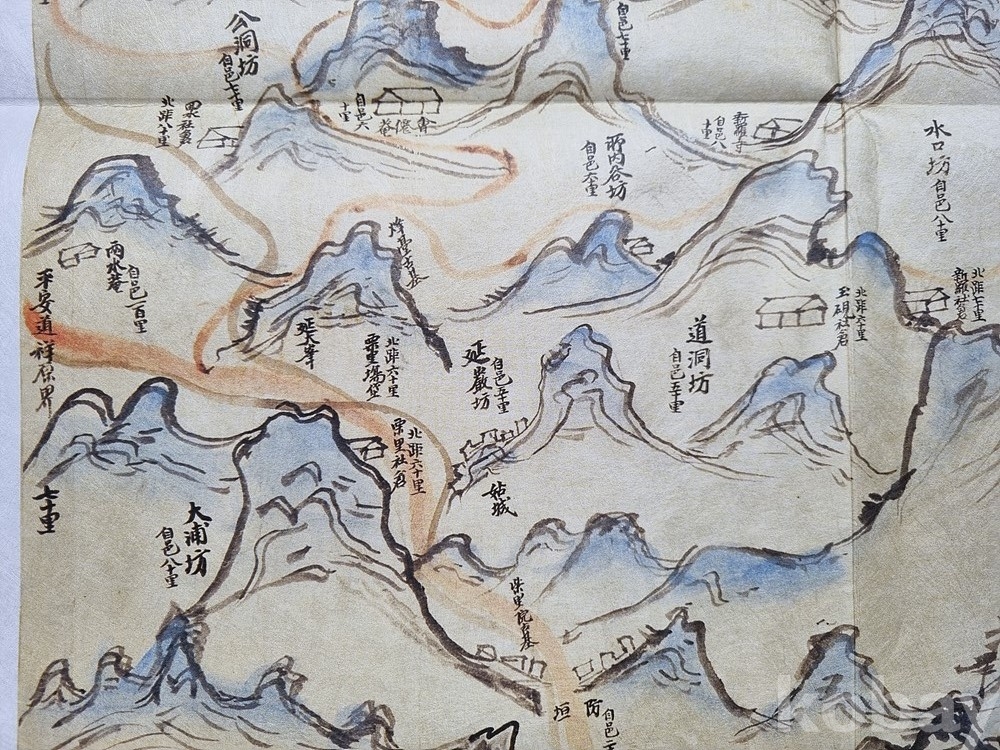 公洞坊
自邑七十里
自邑七十里
北距八十里
自邑六
十里
新羅寺
自邑八
十里
水口坊
自邑八十里
自邑六十里
雨水菴
自邑一百里
平安道祥原界
七十里
烽臺古基
延大峯
北距六十里
栗里場岱
延巖坊
自邑五十里
道洞坊
自邑五十里
北距六十里
玉硯社倉
北距七十里
新羅社倉
北距六十里
栗里社倉
姑城
大浦坊
自邑八十里
柴里院古基
防垣
自邑二
kobay